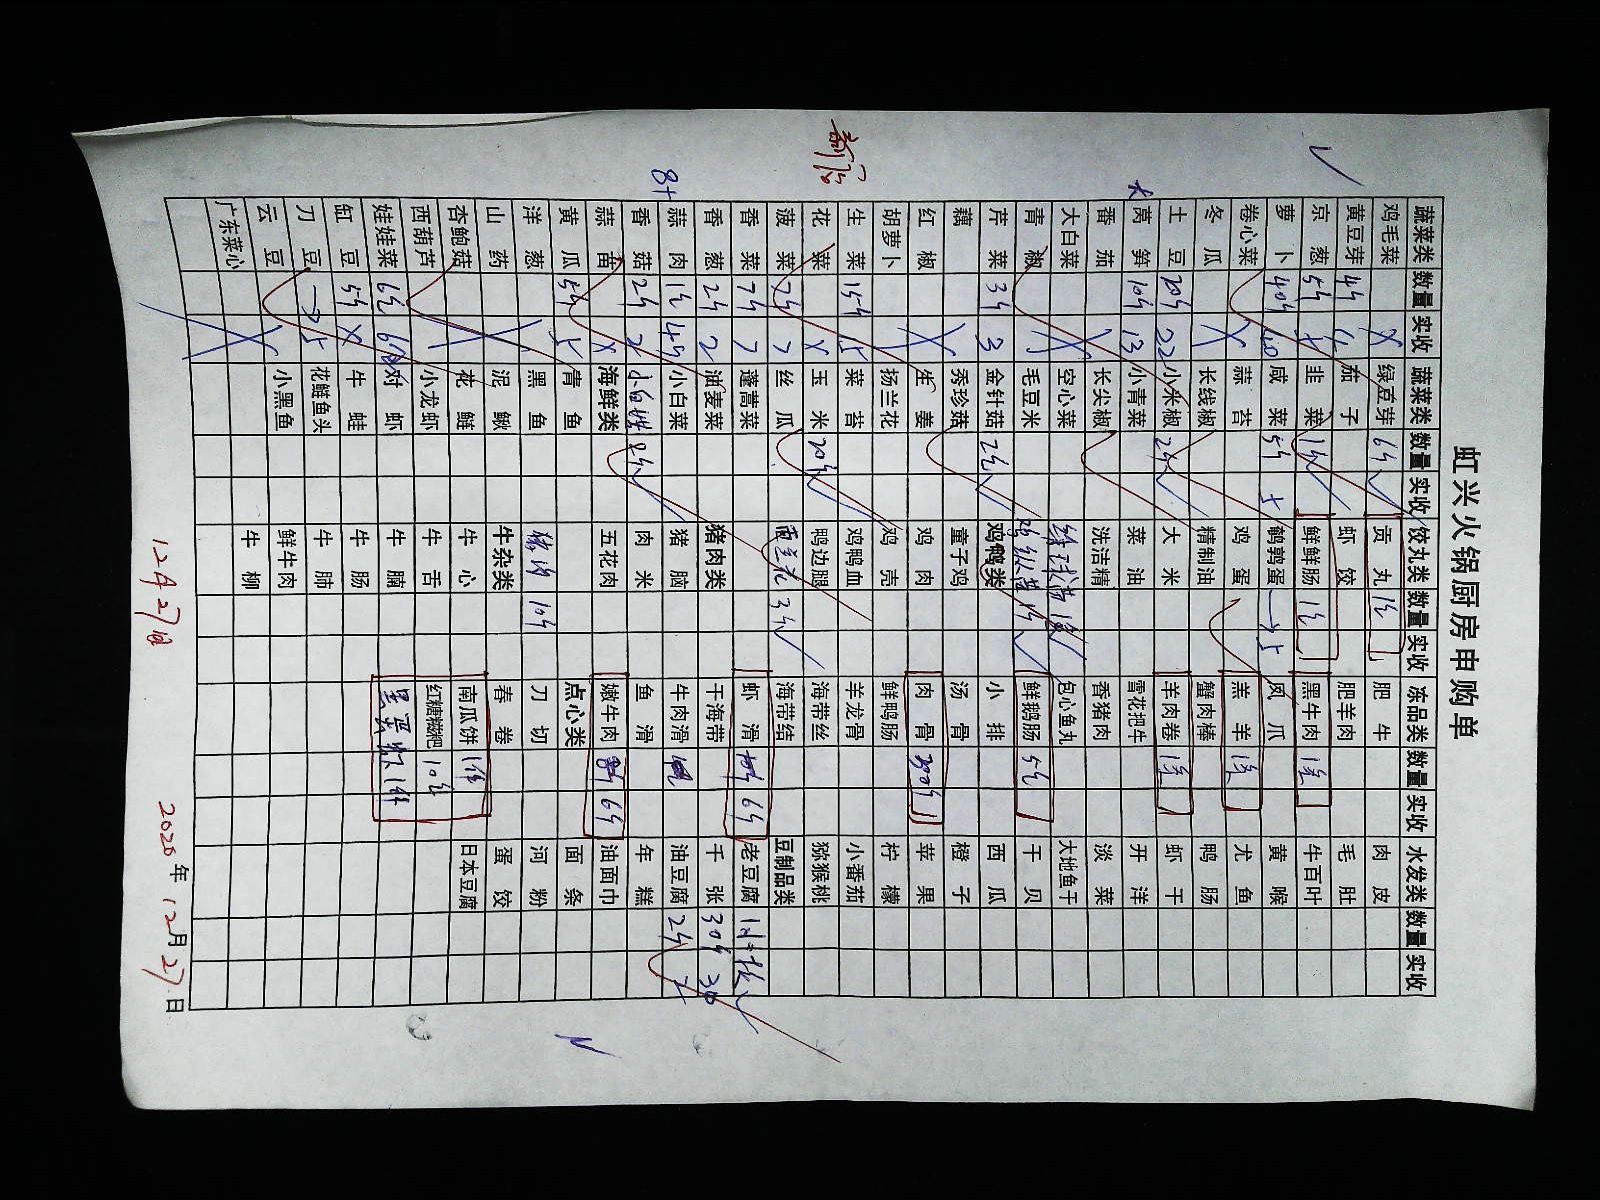 虹兴火锅厨房申购单
蔬菜类 数量 实收 蔬菜类 数量 实收 饺丸类 数量 实收 冻品类 数量 实收 水发类 数量 实收
鸡毛菜 绿豆芽 6斤 贡丸 1包 肥牛 肉皮
黄豆芽 4斤 4 茄子 虾饺 肥羊肉 毛肚
京葱 5斤 韭菜 鲜鲜肠 1包 黑牛肉 1箱 牛百叶
萝卜 40斤 40 咸菜 5斤 鹌鹑蛋 凤爪 黄喉
卷心菜 蒜苔 鸡蛋 羔羊 1箱 尤鱼
冬瓜 长线椒 精制油 蟹肉棒 鸭肠
土豆 20斤 22 小米椒 2斤 大米 羊肉卷 1箱 虾干
莴笋 10斤 13 小青菜 菜油 雪花把牛 开洋
番茄 长尖椒 洗洁精 香猪肉 淡菜
大白菜 空心菜 包心鱼丸 大地鱼干
青椒 毛豆米 鲜鹅肠 5包 干贝
芹菜 3斤 3 金针菇 2包 鸡鸭类 小排 西瓜
藕 秀珍菇 童子鸡 汤骨 橙子
红椒 生姜 鸡肉 肉骨 30斤 苹果
胡萝卜 扬兰花 鸡壳 鲜鸭肠 柠檬
生菜 15斤 15 菜苔 鸡鸭血 羊龙骨 小番茄
花菜 玉米 20斤 鸭边腿 海带丝 猕猴桃
菠菜 7斤 7 丝瓜 西兰花 3斤 海带结 豆制品类
香菜 7斤 7 蓬蒿菜 虾滑 6斤 老豆腐 1块=板
香葱 2斤 2 油麦菜 猪肉类 干海带 千张 30斤 30
蒜肉 1包 4斤 小白菜 猪脑 牛肉滑 油豆腐 2斤 2
香菇 2斤 2 小白虾 8斤 肉米 鱼滑 年糕
蒜苗 海鲜类 五花肉 嫩牛肉 6斤 油面巾
黄瓜 5斤 青鱼 点心类 面条
洋葱 黑鱼 猪肉 10斤 刀切 河粉
山药 泥鳅 牛杂类 春卷 蛋饺
杏鲍菇 花鲢 牛心 南瓜饼 1件 日本豆腐
西葫芦 小龙虾 牛舌 红糖糍粑 10包
娃娃菜 6包 对虾 牛腩
豇豆 5斤 牛蛙 牛肠
刀豆 花鲢鱼头 牛肺
云豆 小黑鱼 鲜牛肉
广东菜心 牛柳
12月27日
2020年12月27日